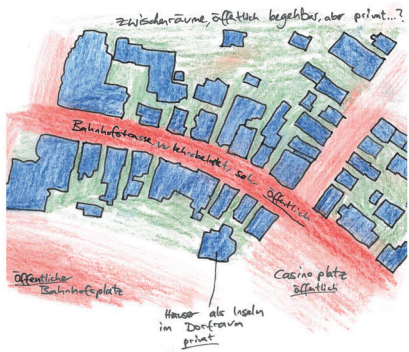 zwischenräume, öffentlich begehbar, aber privat...?
Bahnhofstrasse, verkehrsbelastet, sehr öffentlich
Öffentlicher
Bahnhofsplatz
Häuser als Inseln
im Dorfraum
privat
Casinoplatz
öffentlich